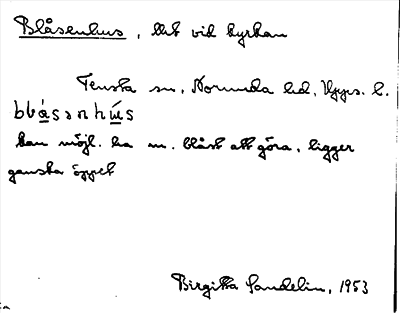 Blåsenhus, tlt vid kyrkan
Tensta sn, Norunda hd, Upps. l.
blåsənhụ́s
kan möjl. ha m. blåst att göra, ligger
ganska öppet
Birgitta Sandelin, 1953